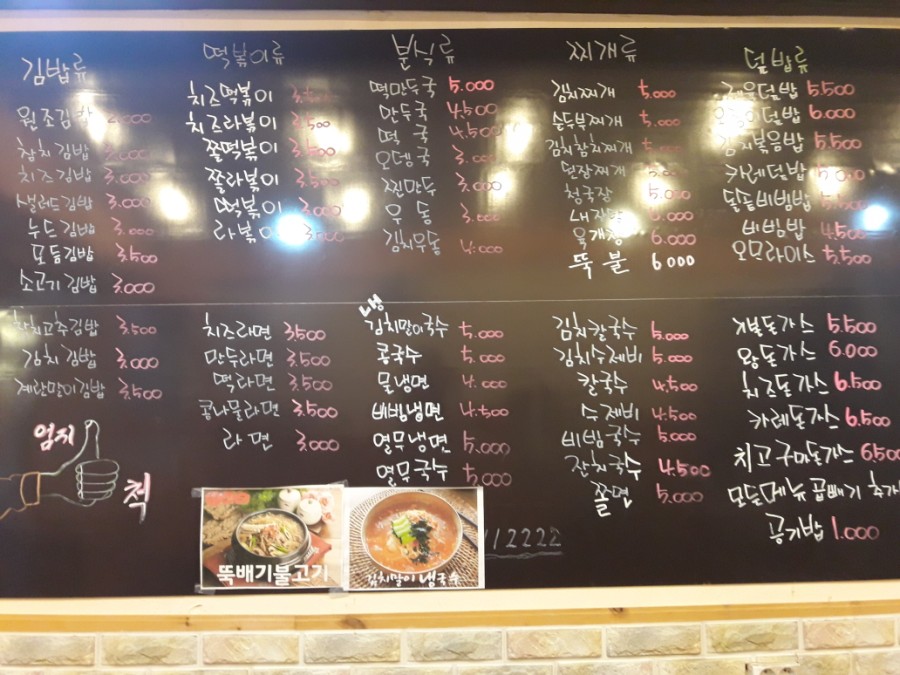 김밥류
원조김밥 2,000
참치김밥 3,000
치즈김밥 3,000
샐러드김밥 3,000
누드김밥 3,000
모듬김밥 3,500
소고기김밥 3,000
참치고추김밥 3,500
김치김밥 3,000
계란말이김밥 3,500
엄지
척
떡볶이류
치즈떡볶이
치즈라볶이 3,500
쫄떡볶이 3,500
쫄라볶이 3,500
떡볶이 3,000
라볶이 3,500
치즈라면 3,500
만두라면 3,500
떡라면 3,500
콩나물라면 3,500
라면 3,000
분식류
떡만두국 5.000
만두국 4,500
떡국 4,500
오뎅국 3,000
찐만두 3,000
우동 3,000
김치우동 4.000
냉
김치말이국수 5.000
콩국수 5.000
물냉면 4.000
비빔냉면 4.500
열무냉면 5,000
열무국수 5,000
찌개류
김치찌개 5.000
순두부찌개 5.000
김치참치찌개 5.000
된장찌개 5.000
청국장 5.000
내장탕 6.000
육개장 6.000
뚝불 6000
김치칼국수 5.000
김치수제비 5.000
칼국수 4,500
수제비 4500
비빔국수 5.000
잔치국수 4,500
쫄면 5,000
덮밥류
제육덮밥 5.500
오징어덮밥 6.000
김치볶음밥 5,500
카레덮밥 5,000
돌솥비빔밥 5,500
비빔밥 4,500
오므라이스 5,500
돈가스 5.500
왕돈가스 6.000
치즈돈가스 6.500
카레돈가스 6.500
치고구마돈가스 6,500
모든메뉴 곱빼기 추가
공기밥 1.000
뚝배기불고기
김치말이 냉국수
112222